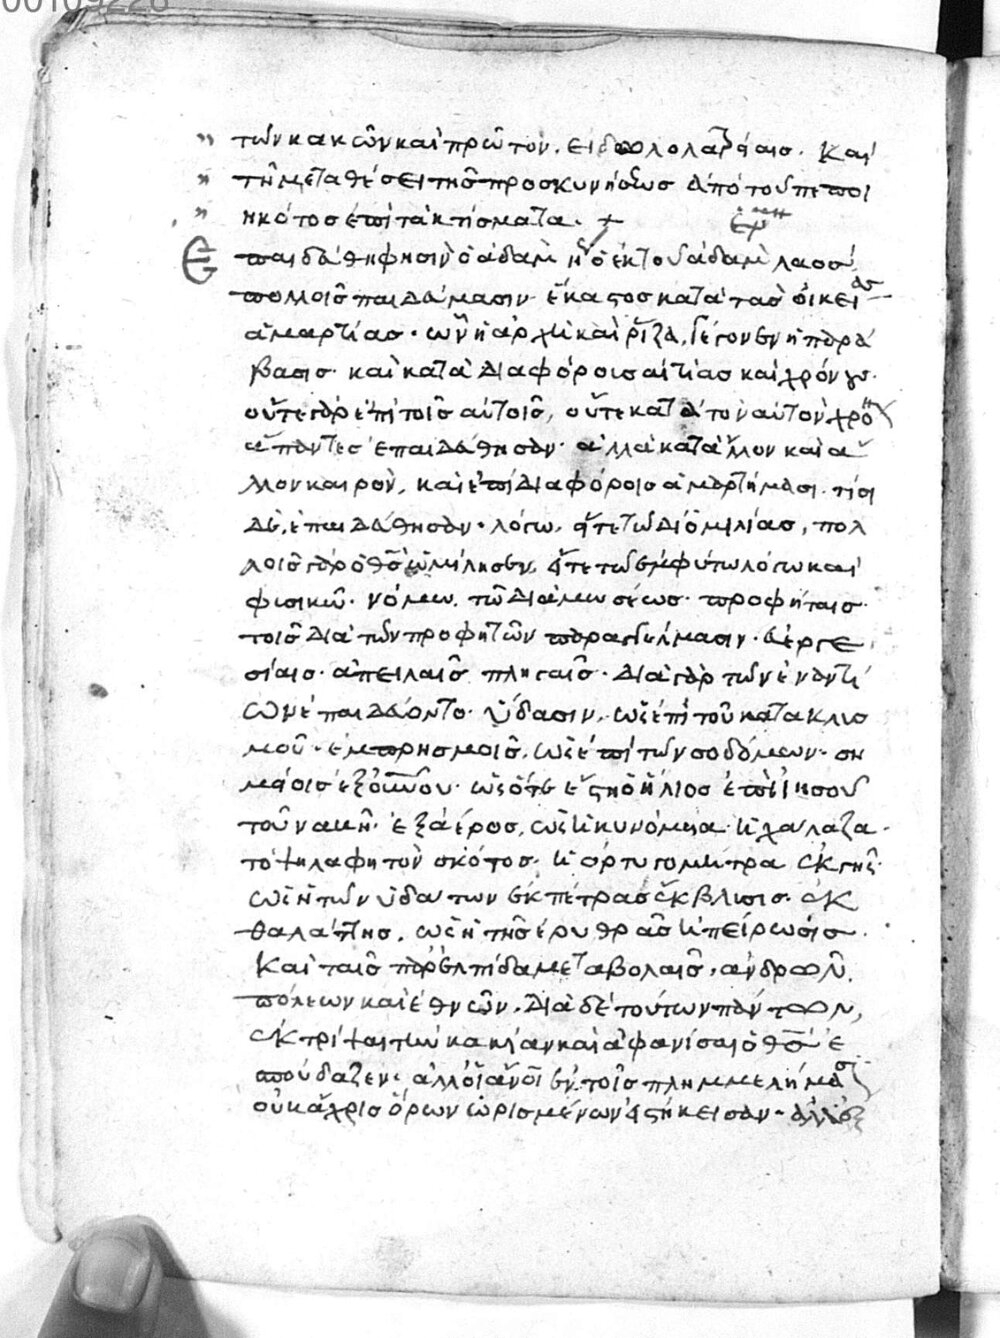 00109228
των κακῶν καὶ πρῶτον, εἰδωλολατρείαις. Καὶ
τῇ μεταθέσει τῆς προσκυνήσεως ἀπὸ τοῦ πεποι
ηκότος ἐπὶ τὰ κτίσματα.
ἑρμη
Επαιδεύθη φησὶν ὁ ἀδὰμ ἢ ὁ ἐκ τοῦ ἀδὰμ λαὸς
πολλοῖς παιδεύμασιν ἕκαστος κατὰ τὰς οἰκείας
ἁμαρτίας. ὧν ἡ ἀρχὴ καὶ ῥίζα, γέγονεν ἡ παρά
βασις. καὶ κατὰ διαφόροις αἰτίας καὶ χρόνους.
οὔτε γὰρ ἐπὶ τοῖς αὐτοῖς, οὔτε κατὰ τὸν αὐτὸν χρόν
ἅπαντες ἐπαιδεύθησαν. ἀλλὰ κατὰ ἄλλον καὶ ἄ
λλον καιρὸν, καὶ ἐπὶ διαφόροις ἁμαρτήμασι. τίσι
δὲ, ἐπαιδεύθησαν. λόγω, ἤτε τῶ δι ὁμιλίας, πολ
λοῖς γὰρ ὁ θς ὡμίλησεν, ἤτε τῶ ἐμφύτω λόγω καὶ
φυσικῶ. νόμω, τῶ διὰ μωσέως. προφήταις.
τοῖς διὰ τῶν προφητῶν παραγγέλμασιν. εὐεργε
σίαις. ἀπειλαῖς πληγαῖς. διὰ γὰρ τῶν ἐναντί
ων ἐπαιδεύοντο. ὕδασιν, ὡς ἐπὶ τοῦ κατακλυσ
μοῦ. ἐμπρησμοῖς, ὡς ἐπὶ τῶν σοδόμων. ση
μείοις ἐξ οὐνου. ὡς ὅτε ἔστη ὁ ἥλιος ἐπὶ ἰησοῦ
τοῦ ναυῆ. ἐξ ἀέρος, ὡς ἡ κυνόμυια. ἡ χάλαζα.
τὸ ψηλαφητὸν σκότος. ἡ ὀρτυγομήτρα ἐκ γῆς.
ὡς ἡ τῶν ὑδάτων ἐκ πέτρας ἔκβλυσις. ἐκ
θαλάττης, ὡς ἡ τῆς ἐρυθρᾶς ἡπείρωσις.
Καὶ ταῖς παρ ἐλπίδα μεταβολαῖς, ἀνδρῶν,
πόλεων καὶ ἐθνῶν, διὰ δὲ τούτων πάντων,
ἐκτρίψαι τὴν κακίαν καὶ ἀφανίσαι ὁ θς ἐ
σπούδαζεν. ἀλλ οἱ ἄνοι ἐν τοῖς πλημμελήμασι
οὐκ ἄχρις ὅρων ὡρισμένων ἱστήκεισαν.